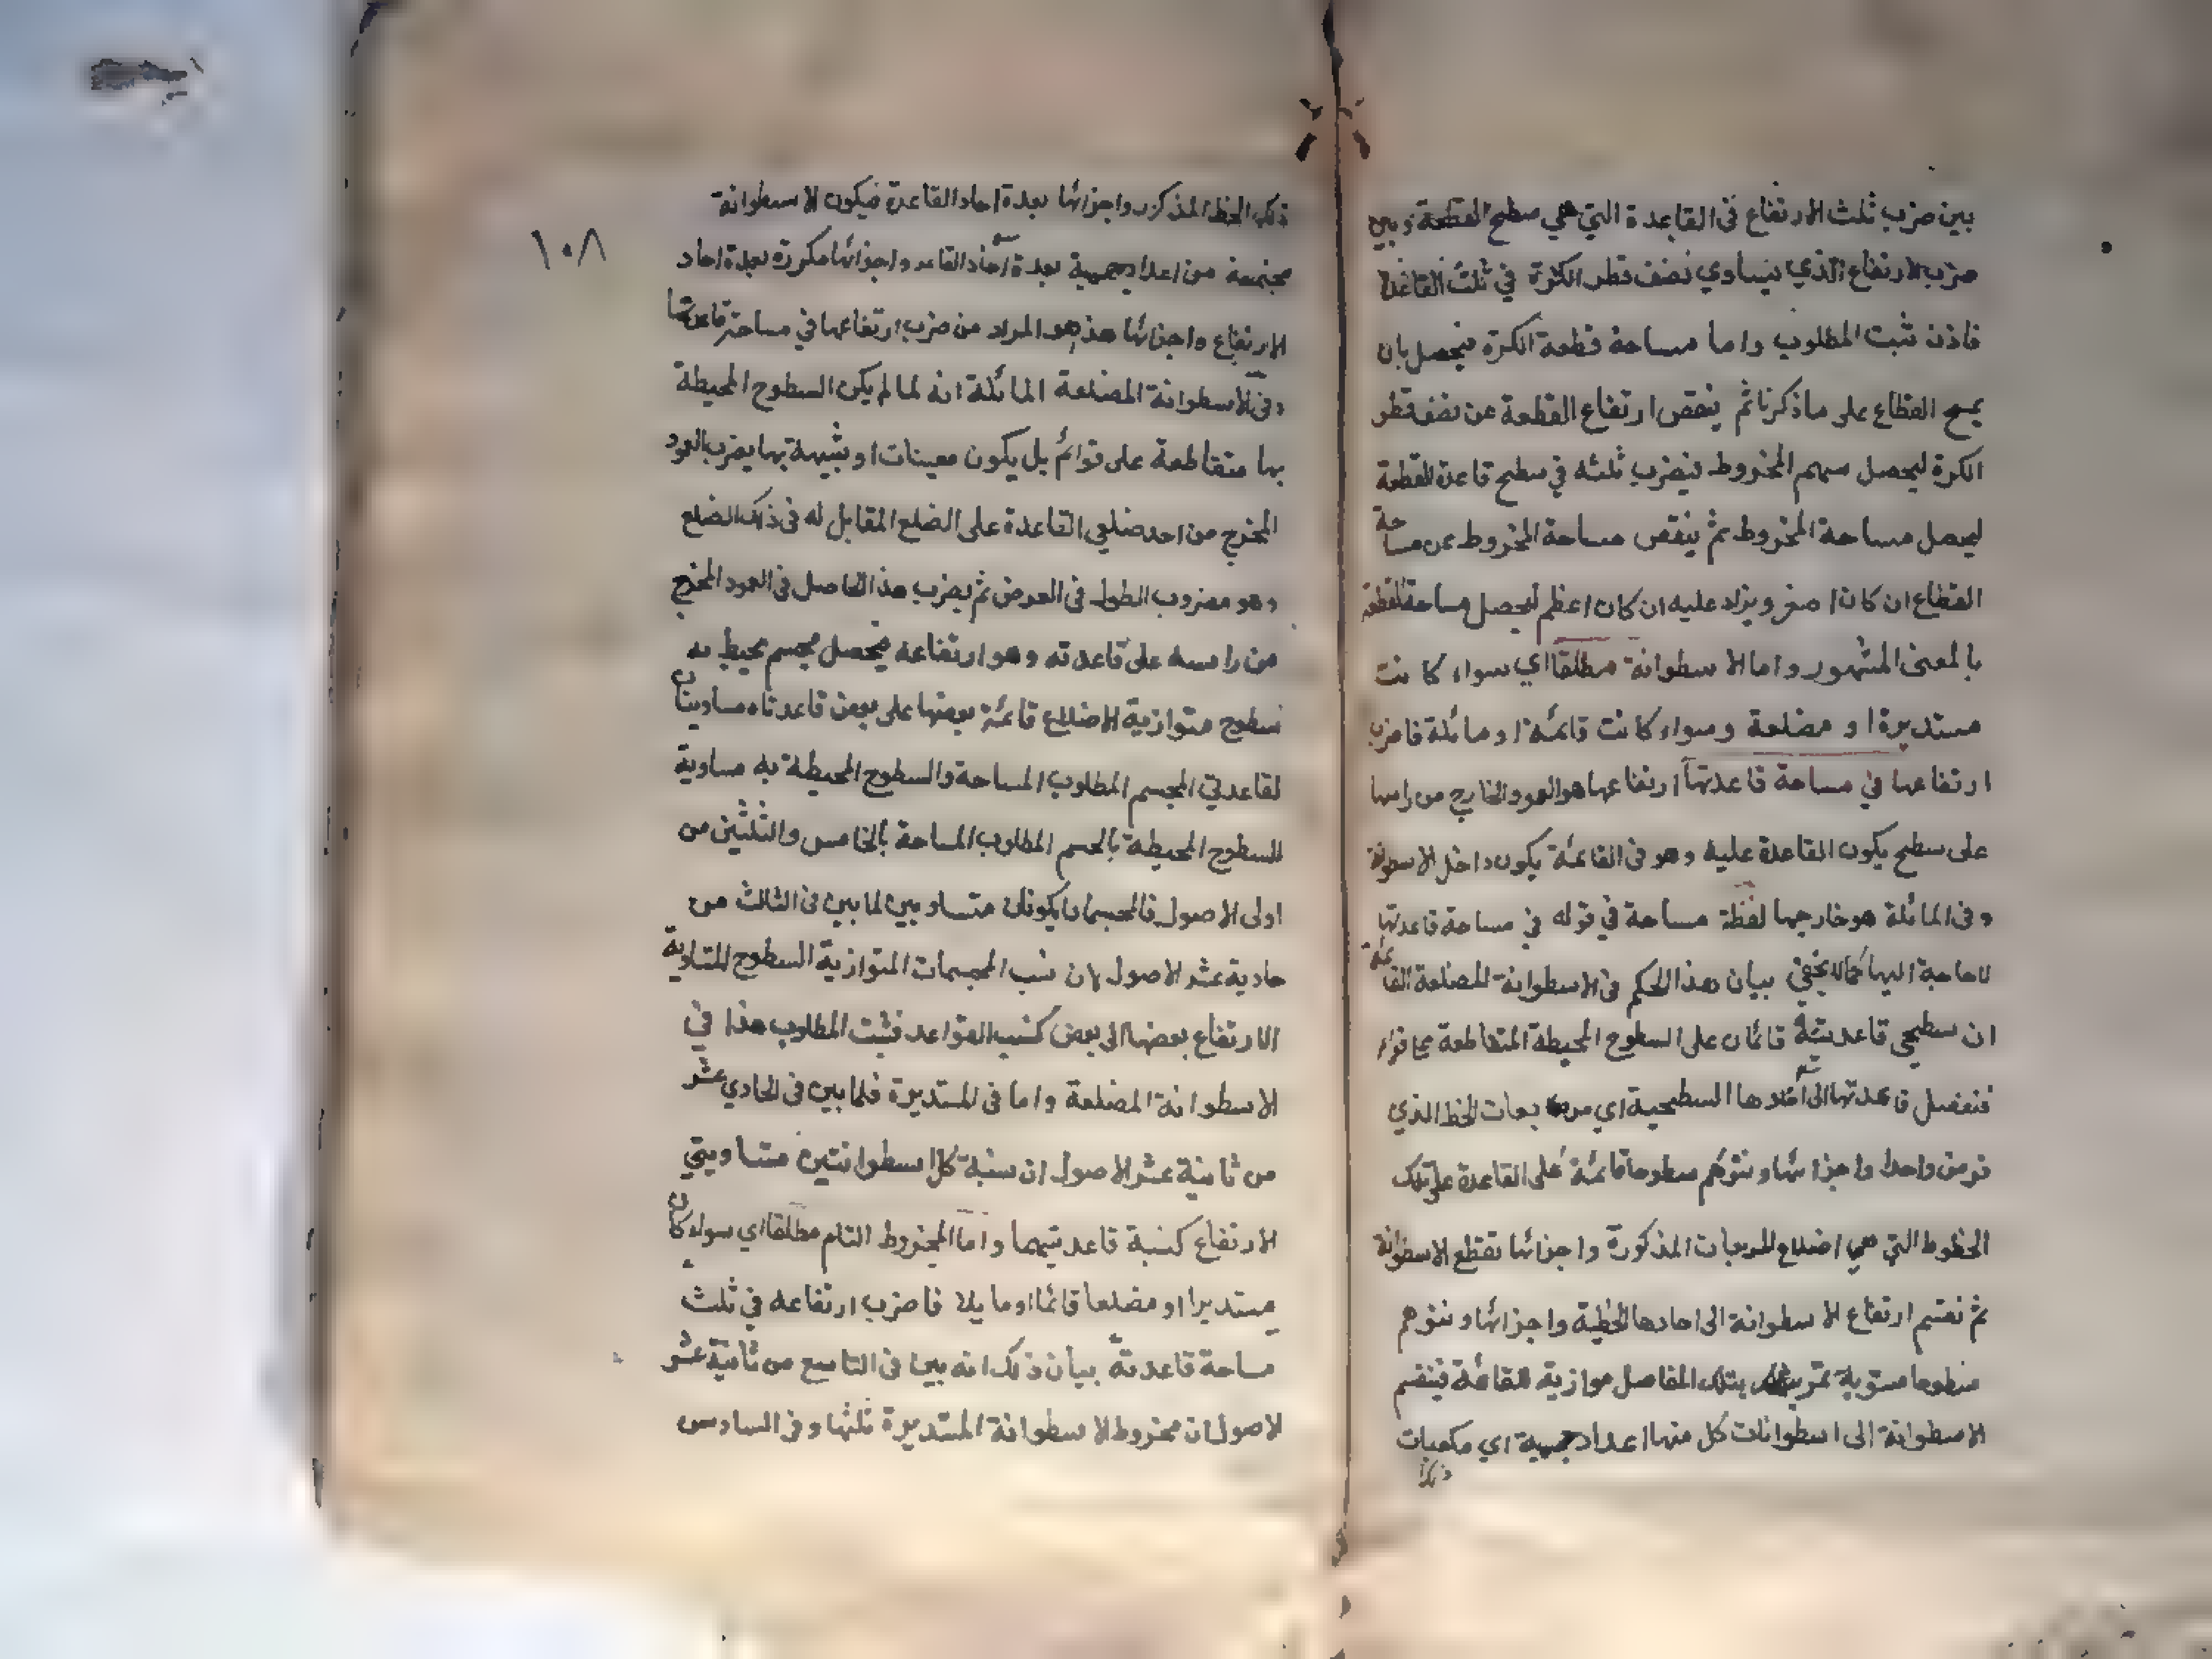 بين ضرب ثلث الارتفاع في القاعدة التي هي سطح القطعة وبين
ضرب الارتفاع الذي يساوي نصف قطر الكرة في ثلث القاعدة
فاذن ثبت المطلوب واما مساحة قطعة الكرة فيحصل بان
يمسح القطاع على ما ذكرنا ثم ينقص ارتفاع القطعة عن نصف قطر
الكرة ليحصل سهم المخروط فيضرب ثلثه في سطح قاعدة القطعة
ليحصل مساحة المخروط ثم ينقص مساحة المخروط عن مساحة
القطاع ان كان اصغر ويزاد عليه ان كان اعظم ليحصل مساحة القطعة
بالمعنى المشهور واما الاسطوانة مطلقا اي سواء كانت
مستديرة او مضلعة وسواء كانت قائمة او مائلة فاضرب
ارتفاعها في مساحة قاعدتها ارتفاعها هو العمود الخارج من راسها
على سطح يكون القاعدة عليه وهو في القائمة يكون داخل الاسطوانة
وفي المائلة هو خارجها لفظة مساحة في قوله في مساحة قاعدتها
لا حاجة اليها كما لا يخفى بيان هذا الحكم في الاسطوانة المضلعة القائمة
ان سطحي قاعدتيه قائمان على السطوح المحيطة المتقاطعة على قوائم
فنفصل قاعدتها الى آحادها السطحية اي مربعات الخط الذي
فرض واحدا واجزائها ونتوهم سطوحا قائمة على القاعدة على تلك
الخطوط التي هي اضلاع المربعات المذكورة واجزائها تقطع الاسطوانة
ثم نقسم ارتفاع الاسطوانة الى احادها الخطية واجزائها ونتوهم
سطوحا مستوية تمر بتلك المفاصل موازية للقاعدة فينقسم
الاسطوانة الى اسطوانات كل منها اعداد جسمية اي مكعبات
ذلك
١٠٨
ذلك الخط المذكور واجزائها بعدة احاد القاعدة فيكون الاسطوانة
مجتمعة من اعداد جسمية بعدة آحاد القاعدة واجزائها مكررة بعدة احاد
الارتفاع واجزائها هذا هو المراد من ضرب ارتفاعها في مساحة قاعدتها
وفي الاسطوانة المضلعة المائلة انه لما لم يكن السطوح المحيطة
بها متقاطعة على قوائم بل يكون معينات او شبيهة بها يضرب العمود
المخرج من احد ضلعي القاعدة على الضلع المقابل له في ذلك الضلع
وهو مضروب الطول في العرض ثم يضرب هذا الحاصل في العمود المخرج
من راسه على قاعدته وهو ارتفاعه فيحصل مجسم محيط به
سطوح متوازية الاضلاع قائمة بعضها على بعض قاعدتاه مساويتان
لقاعدتي المجسم المطلوب المساحة والسطوح المحيطة به مساوية
للسطوح المحيطة بالجسم المطلوب المساحة بالخامس والثلثين من
اولى الاصول فالمجسمان يكونان متساويين لما بين في الثالث من
حادية عشر الاصول لان نسب المجسمات المتوازية السطوح المتساوية
الارتفاع بعضها الى بعض كنسب القواعد فثبت المطلوب هذا في
الاسطوانة المضلعة واما في المستديرة فلما بين في الحادي عشر
من ثانية عشر الاصول ان نسبة كل اسطوانتين متساويتي
الارتفاع كنسبة قاعدتيهما واما المخروط التام مطلقا اي سواء كان
مستديرا او مضلعا قائما او مايلا فاضرب ارتفاعه في ثلث
مساحة قاعدته بيان ذلك انه بين في التاسع من ثانية عشر
الاصول ان مخروط الاسطوانة المستديرة ثلثها وفي السادس